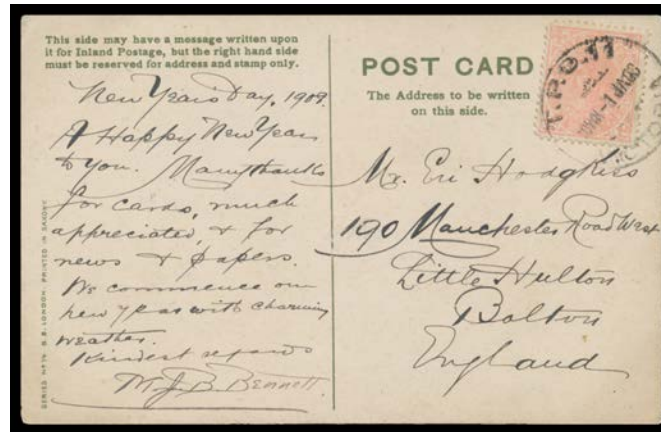 This side may have a message written upon
it for Inland Postage, but the right hand side
must be reserved for address and stamp only.
New Year's Day, 1909.
A Happy New Year
to you. Many thanks
for cards, much
appreciated, & for
news & papers.
We commence our
new year with charming
weather.
Kindest regards
M.J.B. Bennett.
POST CARD
The Address to be written
on this side.
Mr. Eri Hodgkiss
190 Manchester Road West
Little Hulton
Bolton
England
T.P.O. 11
PRINTED IN SAXONY
LONDON
SERIES